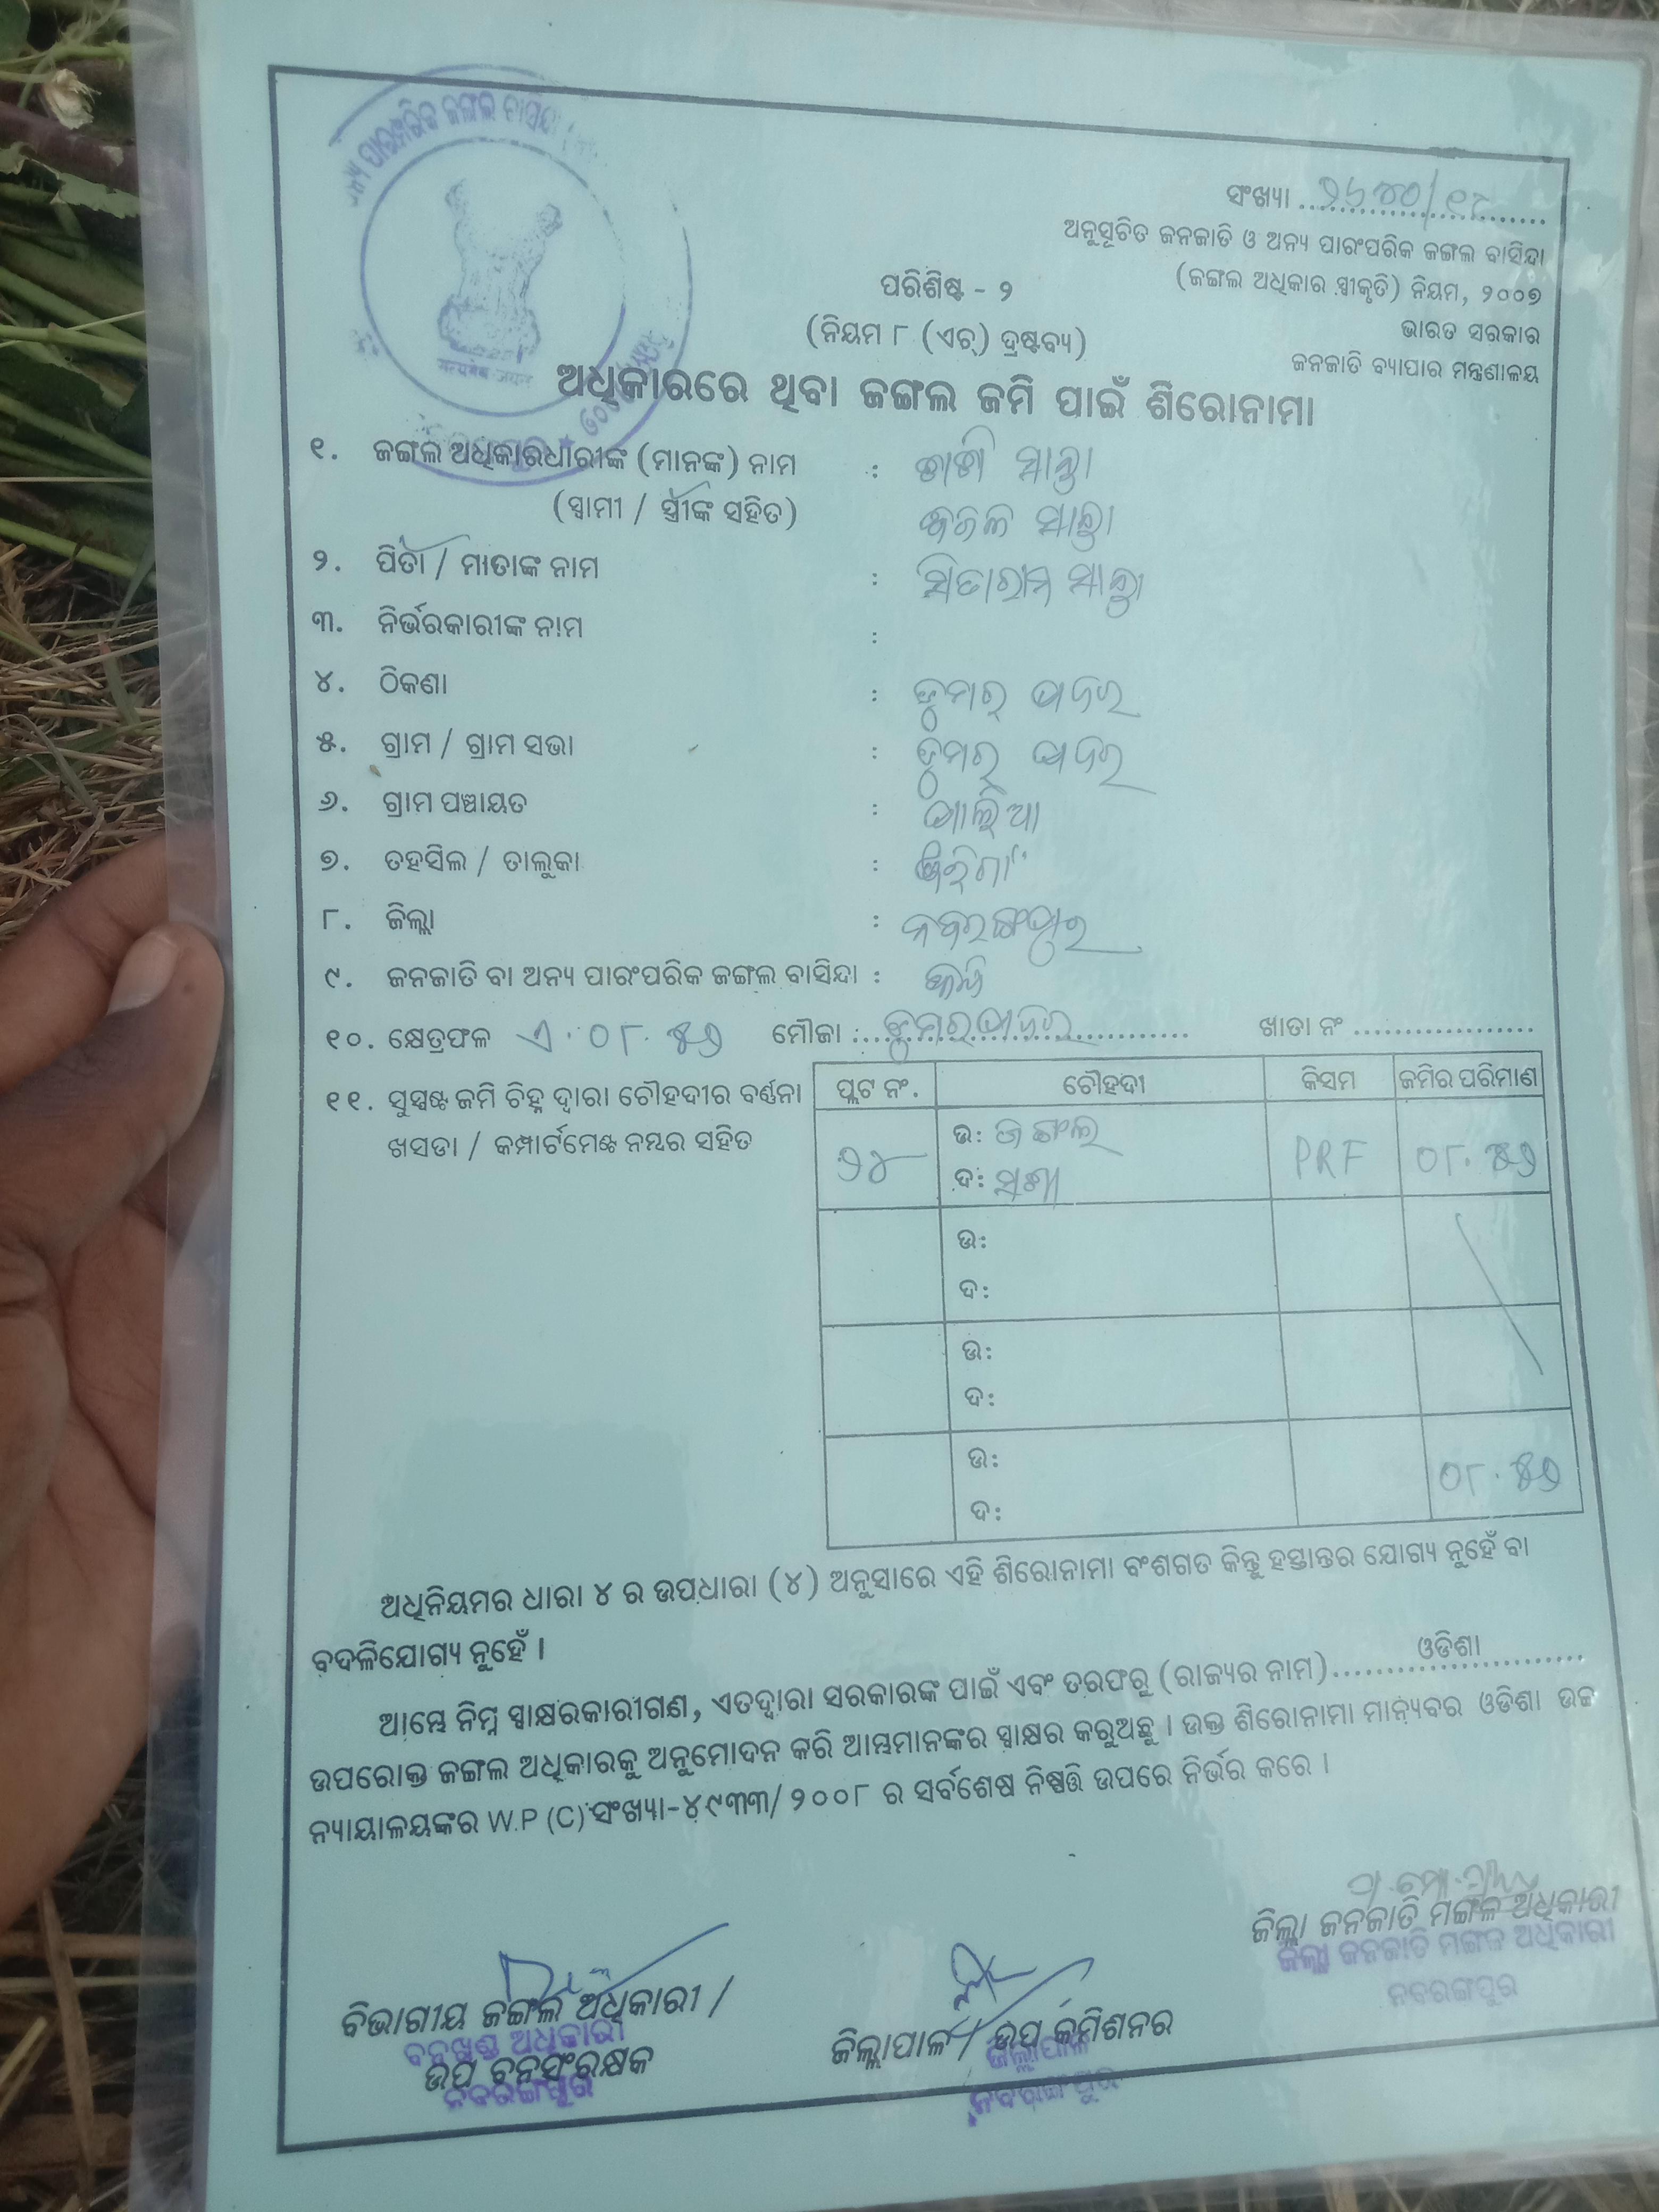 ସଂଖ୍ୟା
ଅନୁସୂଚିତ ଜନଜାତି ଓ ଅନ୍ୟ ପାରଂପରିକ ଜଙ୍ଗଲ ବାସିନ୍ଦା
(ଜଙ୍ଗଲ ଅଧିକାର ସ୍ୱୀକୃତି) ନିୟମ, ୨୦୦୭
ଭାରତ ସରକାର
ଜନଜାତି ବ୍ୟାପାର ମନ୍ତ୍ରଣାଳୟ
ପରିଶିଷ୍ଟ - ୨
(ନିୟମ ୮ (ଏଚ୍) ଦ୍ରଷ୍ଟବ୍ୟ)
ଅଧିକାରରେ ଥିବା ଜଙ୍ଗଲ ଜମି ପାଇଁ ଶିରୋନାମା
୧. ଜଙ୍ଗଲ ଅଧିକାରଧାରୀଙ୍କ (ମାନଙ୍କ) ନାମ :
(ସ୍ୱାମୀ / ସ୍ତ୍ରୀଙ୍କ ସହିତ)
୨. ପିତା / ମାତାଙ୍କ ନାମ : ସିତାରାମ
୩. ନିର୍ଭରକାରୀଙ୍କ ନାମ :
୪. ଠିକଣା :
୫. ଗ୍ରାମ / ଗ୍ରାମ ସଭା :
୬. ଗ୍ରାମ ପଞ୍ଚାୟତ :
୭. ତହସିଲ / ତାଲୁକା :
୮. ଜିଲ୍ଲା : ନବରଙ୍ଗପୁର
୯. ଜନଜାତି ବା ଅନ୍ୟ ପାରଂପରିକ ଜଙ୍ଗଲ ବାସିନ୍ଦା :
୧୦. କ୍ଷେତ୍ରଫଳ ଏ. ୦୮.୫୭ ମୌଜା : ଖାତା ନଂ
୧୧. ସୁସ୍ପଷ୍ଟ ଜମି ଚିହ୍ନ ଦ୍ୱାରା ଚୌହଦୀର ବର୍ଣ୍ଣନା
ଖସଡା / କମ୍ପାର୍ଟମେଣ୍ଟ ନମ୍ବର ସହିତ
ପ୍ଲଟ ନଂ. ଚୌହଦୀ କିସମ ଜମିର ପରିମାଣ
୭୪ ଉ: ଜଙ୍ଗଲ PRF ୦୮.୫୭
ଦ:
ଉ:
ଦ:
ଉ:
ଦ:
ଉ: ୦୮.୫୭
ଦ:
ଅଧିନିୟମର ଧାରା ୪ ର ଉପଧାରା (୪) ଅନୁସାରେ ଏହି ଶିରୋନାମା ବଂଶଗତ କିନ୍ତୁ ହସ୍ତାନ୍ତର ଯୋଗ୍ୟ ନୁହେଁ ବା
ବଦଳିଯୋଗ୍ୟ ନୁହେଁ ।
ଆମ୍ଭେ ନିମ୍ନ ସ୍ୱାକ୍ଷରକାରୀଗଣ, ଏତଦ୍ୱାରା ସରକାରଙ୍କ ପାଇଁ ଏବଂ ତରଫରୁ (ରାଜ୍ୟର ନାମ) ଓଡିଶା
ଉପରୋକ୍ତ ଜଙ୍ଗଲ ଅଧିକାରକୁ ଅନୁମୋଦନ କରି ଆମ୍ଭମାନଙ୍କର ସ୍ୱାକ୍ଷର କରୁଅଛୁ । ଉକ୍ତ ଶିରୋନାମା ମାନ୍ୟବର ଓଡିଶା ଉଚ୍ଚ
ନ୍ୟାୟାଳୟଙ୍କର W.P (C) ସଂଖ୍ୟା-୪୯୩୩/୨୦୦୮ ର ସର୍ବଶେଷ ନିଷ୍ପତ୍ତି ଉପରେ ନିର୍ଭର କରେ ।
ଜିଲ୍ଲା ଜନଜାତି ମଙ୍ଗଳ ଅଧିକାରୀ
ଜିଲ୍ଲା ଜନଜାତି ମଙ୍ଗଳ ଅଧିକାରୀ
ନବରଙ୍ଗପୁର
ବିଭାଗୀୟ ଜଙ୍ଗଲ ଅଧିକାରୀ /
ବନଖଣ୍ଡ ଅଧିକାରୀ
ଉପ ବନସଂରକ୍ଷକ
ନବରଙ୍ଗପୁର
ଜିଲ୍ଲାପାଳ / ଉପ କମିଶନର
ଜିଲ୍ଲାପାଳ
ନବରଙ୍ଗପୁର